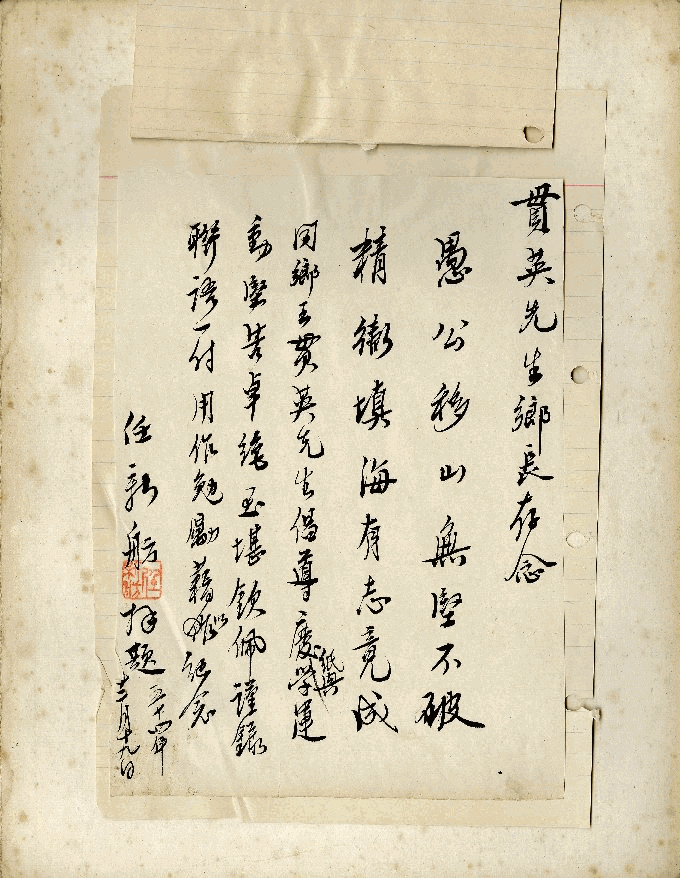 貫英先生鄉長存念
愚公移山無堅不破
精衛填海有志竟成
同鄉王貫英先生倡導廢紙興學運
動堅苦卓絕至堪欽佩謹錄
聯語一付用作勉勵藉以紀念
任新舫拜題
五十四年
十一月十九日